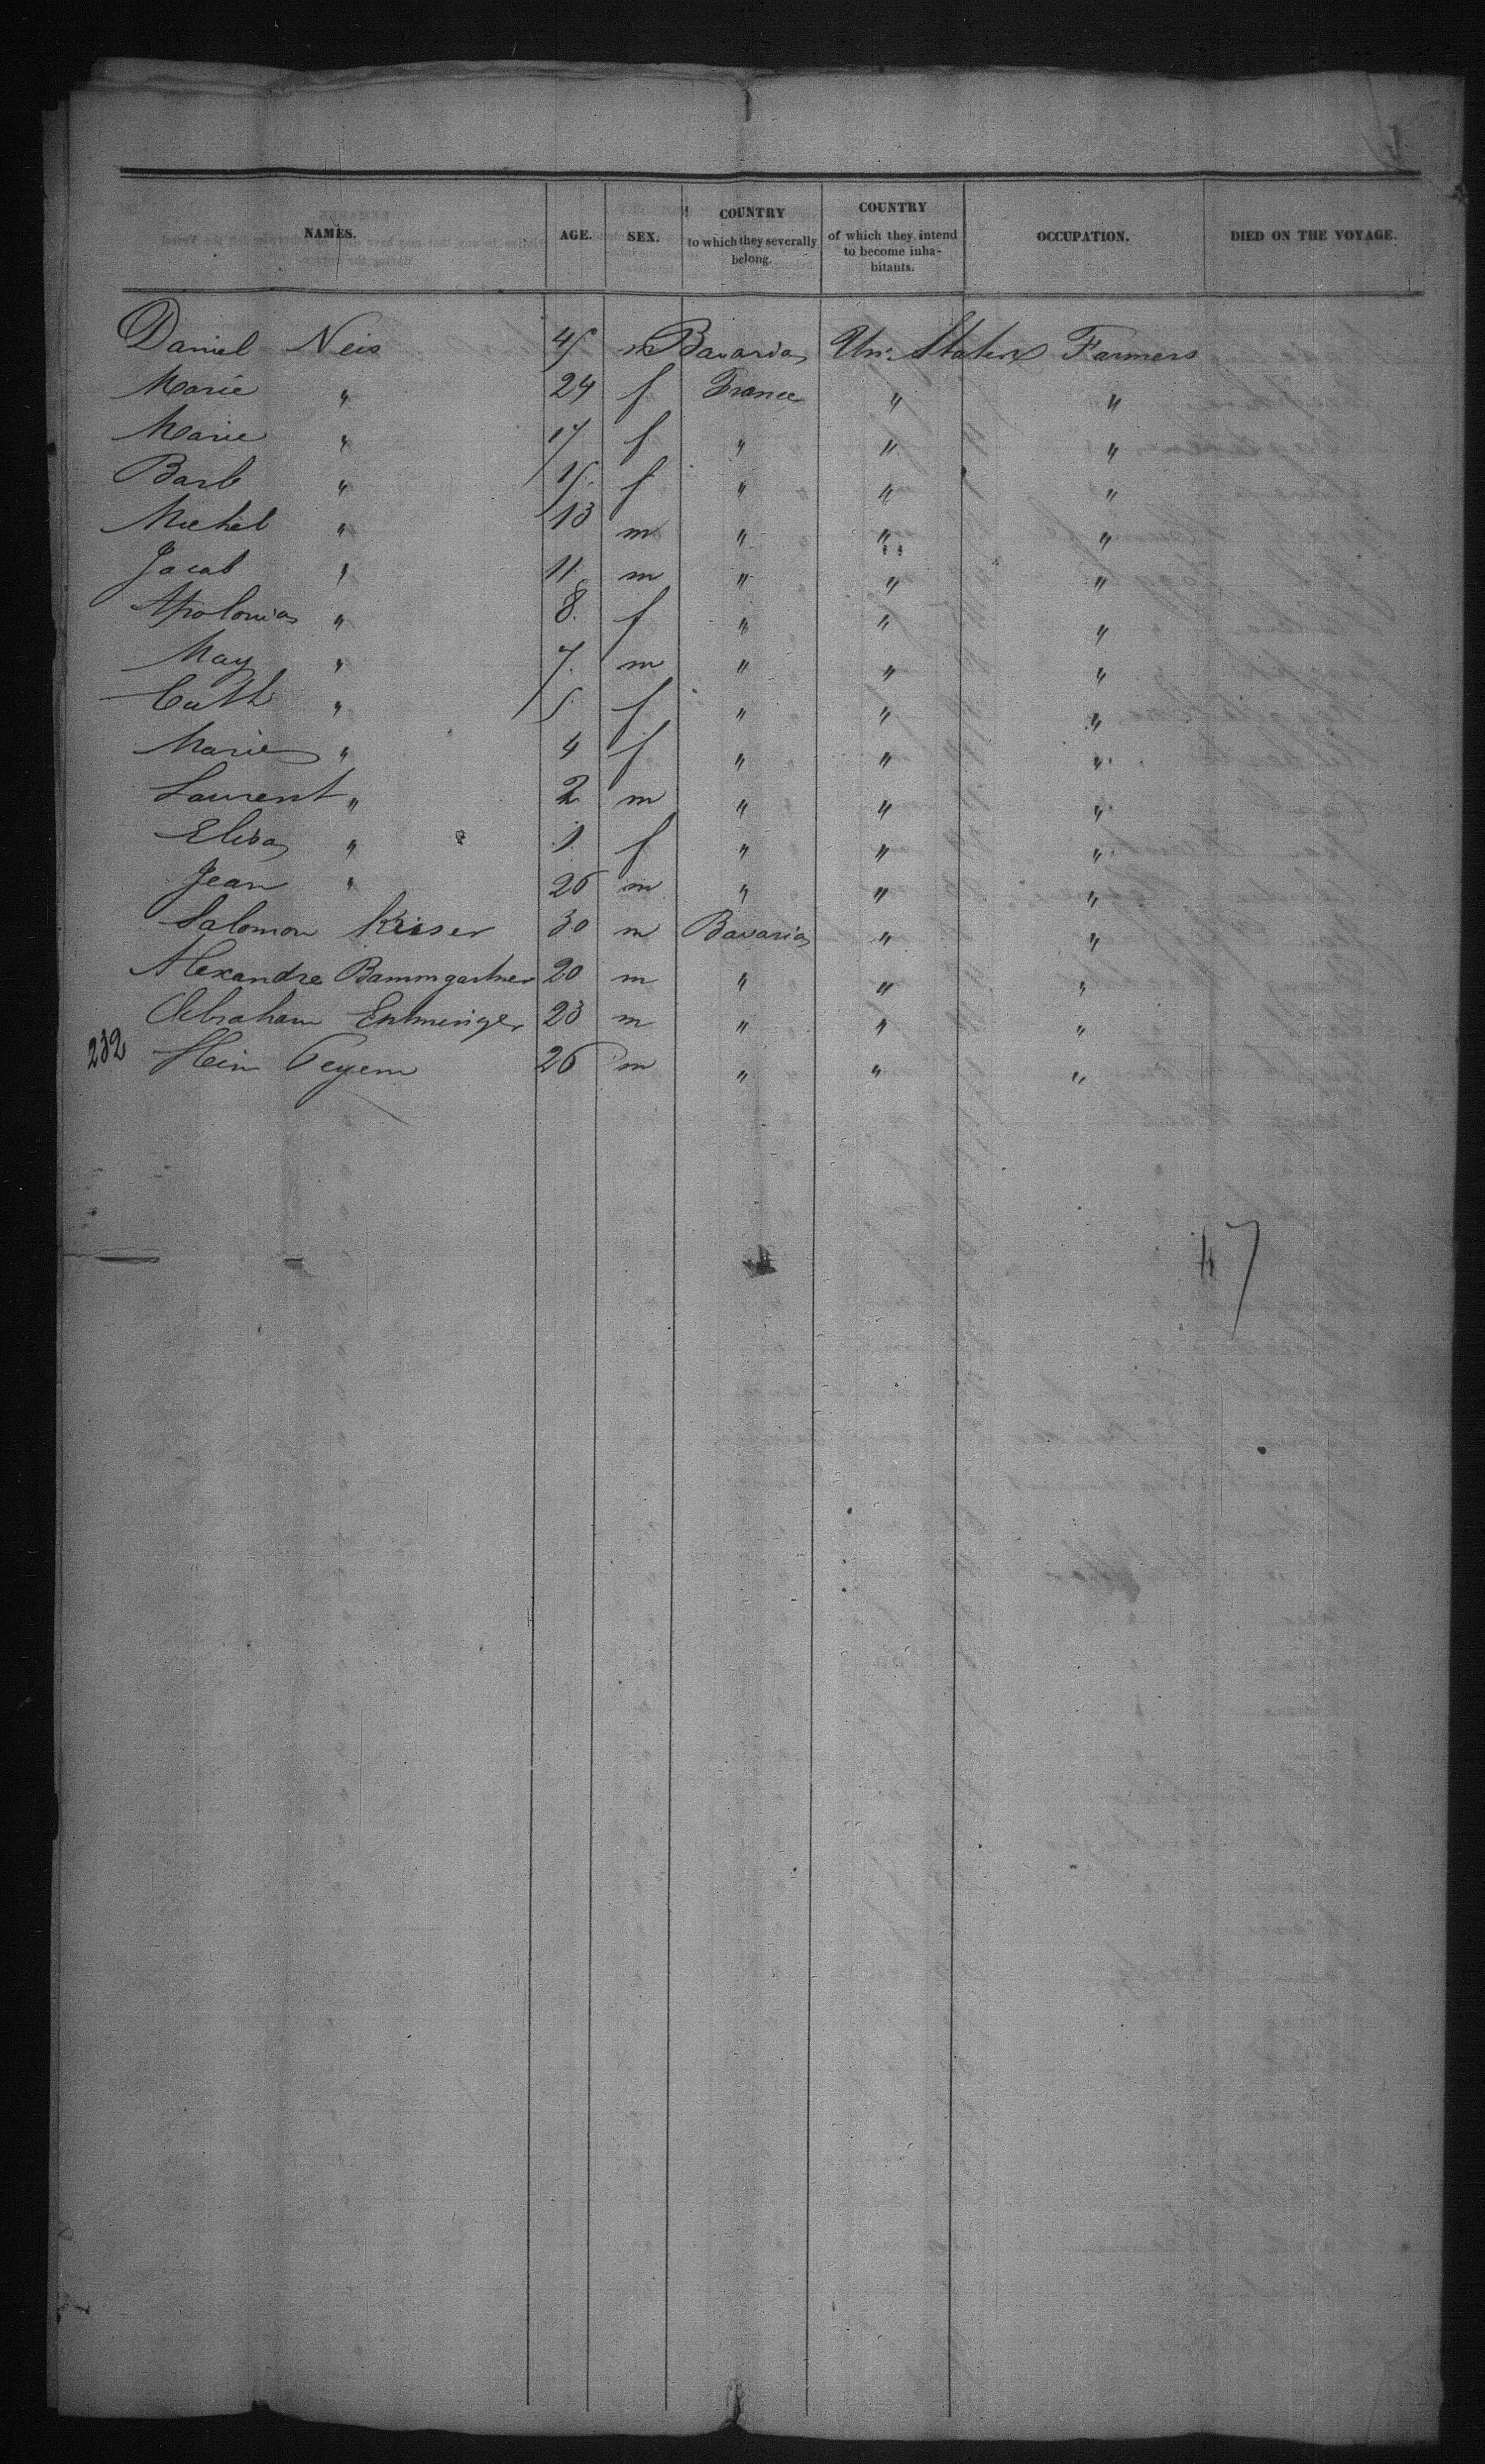 NAMES. AGE. SEX. COUNTRY to which they severally belong. COUNTRY of which they intend to become inhabitants. OCCUPATION. DIED ON THE VOYAGE.
Daniel Neis 45 m Bavaria Un. States Farmers
Marie " 24 f France " "
Marie " 17 f " " "
Barb " 15 f " " "
Michel " 13 m " " "
Jacob " 11 m " " "
Apolonia " 8 f " " "
May " 7 m " " "
Cath " 5 f " " "
Marie " 4 f " " "
Laurent " 2 m " " "
Elisa " 1 f " " "
Jean " 26 m " " "
Salomon Keiser 30 m Bavaria " "
Alexandre Bammgartner 20 m " " "
Abraham 23 m " " "
232 26 m " " "
47